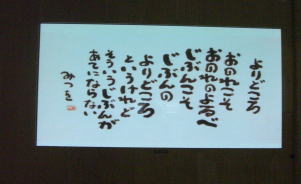 よりどころ
おのれこそ
おのれのよるべ
じぶんこそ
じぶんの
よりどころ
というけれど
そういうじぶんが
あてにならない
みつを